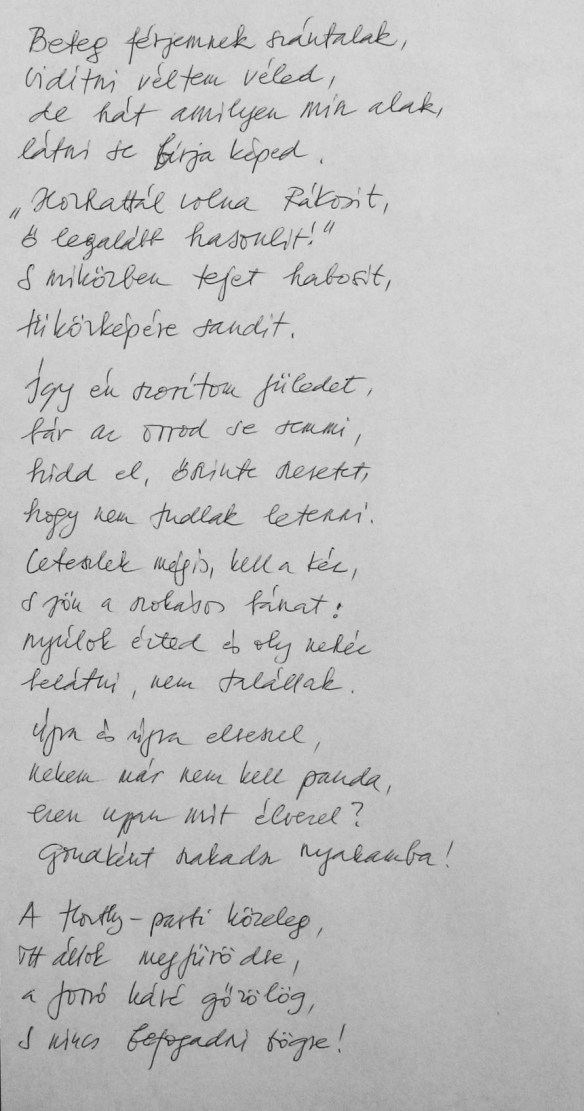 Beteg férjemnek szántalak,
vidítni véltem véled,
de hát amilyen min alak,
látni se bírja képed.
„Hozhattál volna Rákosit,
ő legalább hasonlít!"
S miközben tejet habosit,
tükörképére sandít.
Így én szorítom füledet,
bár az orrod se semmi,
hidd el, őszinte szeretet,
hogy nem tudlak letenni.
Leteszlek mégis, kell a kéz,
S jön a szokásos bánat:
nyúlok érted és oly nehéz
belátni, nem talállak.
Újra és újra elveszel,
nekem már nem kell panda,
ezen ugyan mit élvezel?
Gondként szakadsz nyakamba!
A Horthy-parti közeleg,
itt állok megfürödve,
a forró kávé gőzölög,
S nincs befogadni bögre!